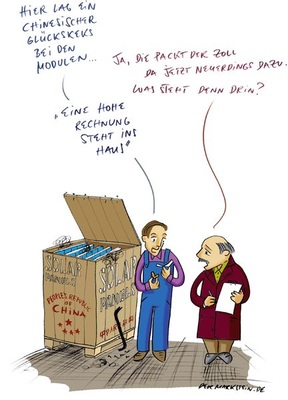 HIER LAG EIN
CHINESISCHER
GLÜCKSKEKS
BEI DEN
MODULEN...
JA, DIE PACKT DER ZOLL
DA JETZT NEUERDINGS DAZU.
WAS STEHT DENN DRIN?
„EINE HOHE
RECHNUNG
STEHT INS
HAUS“
SOLAR
PANELS
SOLAR
PANELS
PEOPLES REPUBLIC
OF
CHINA